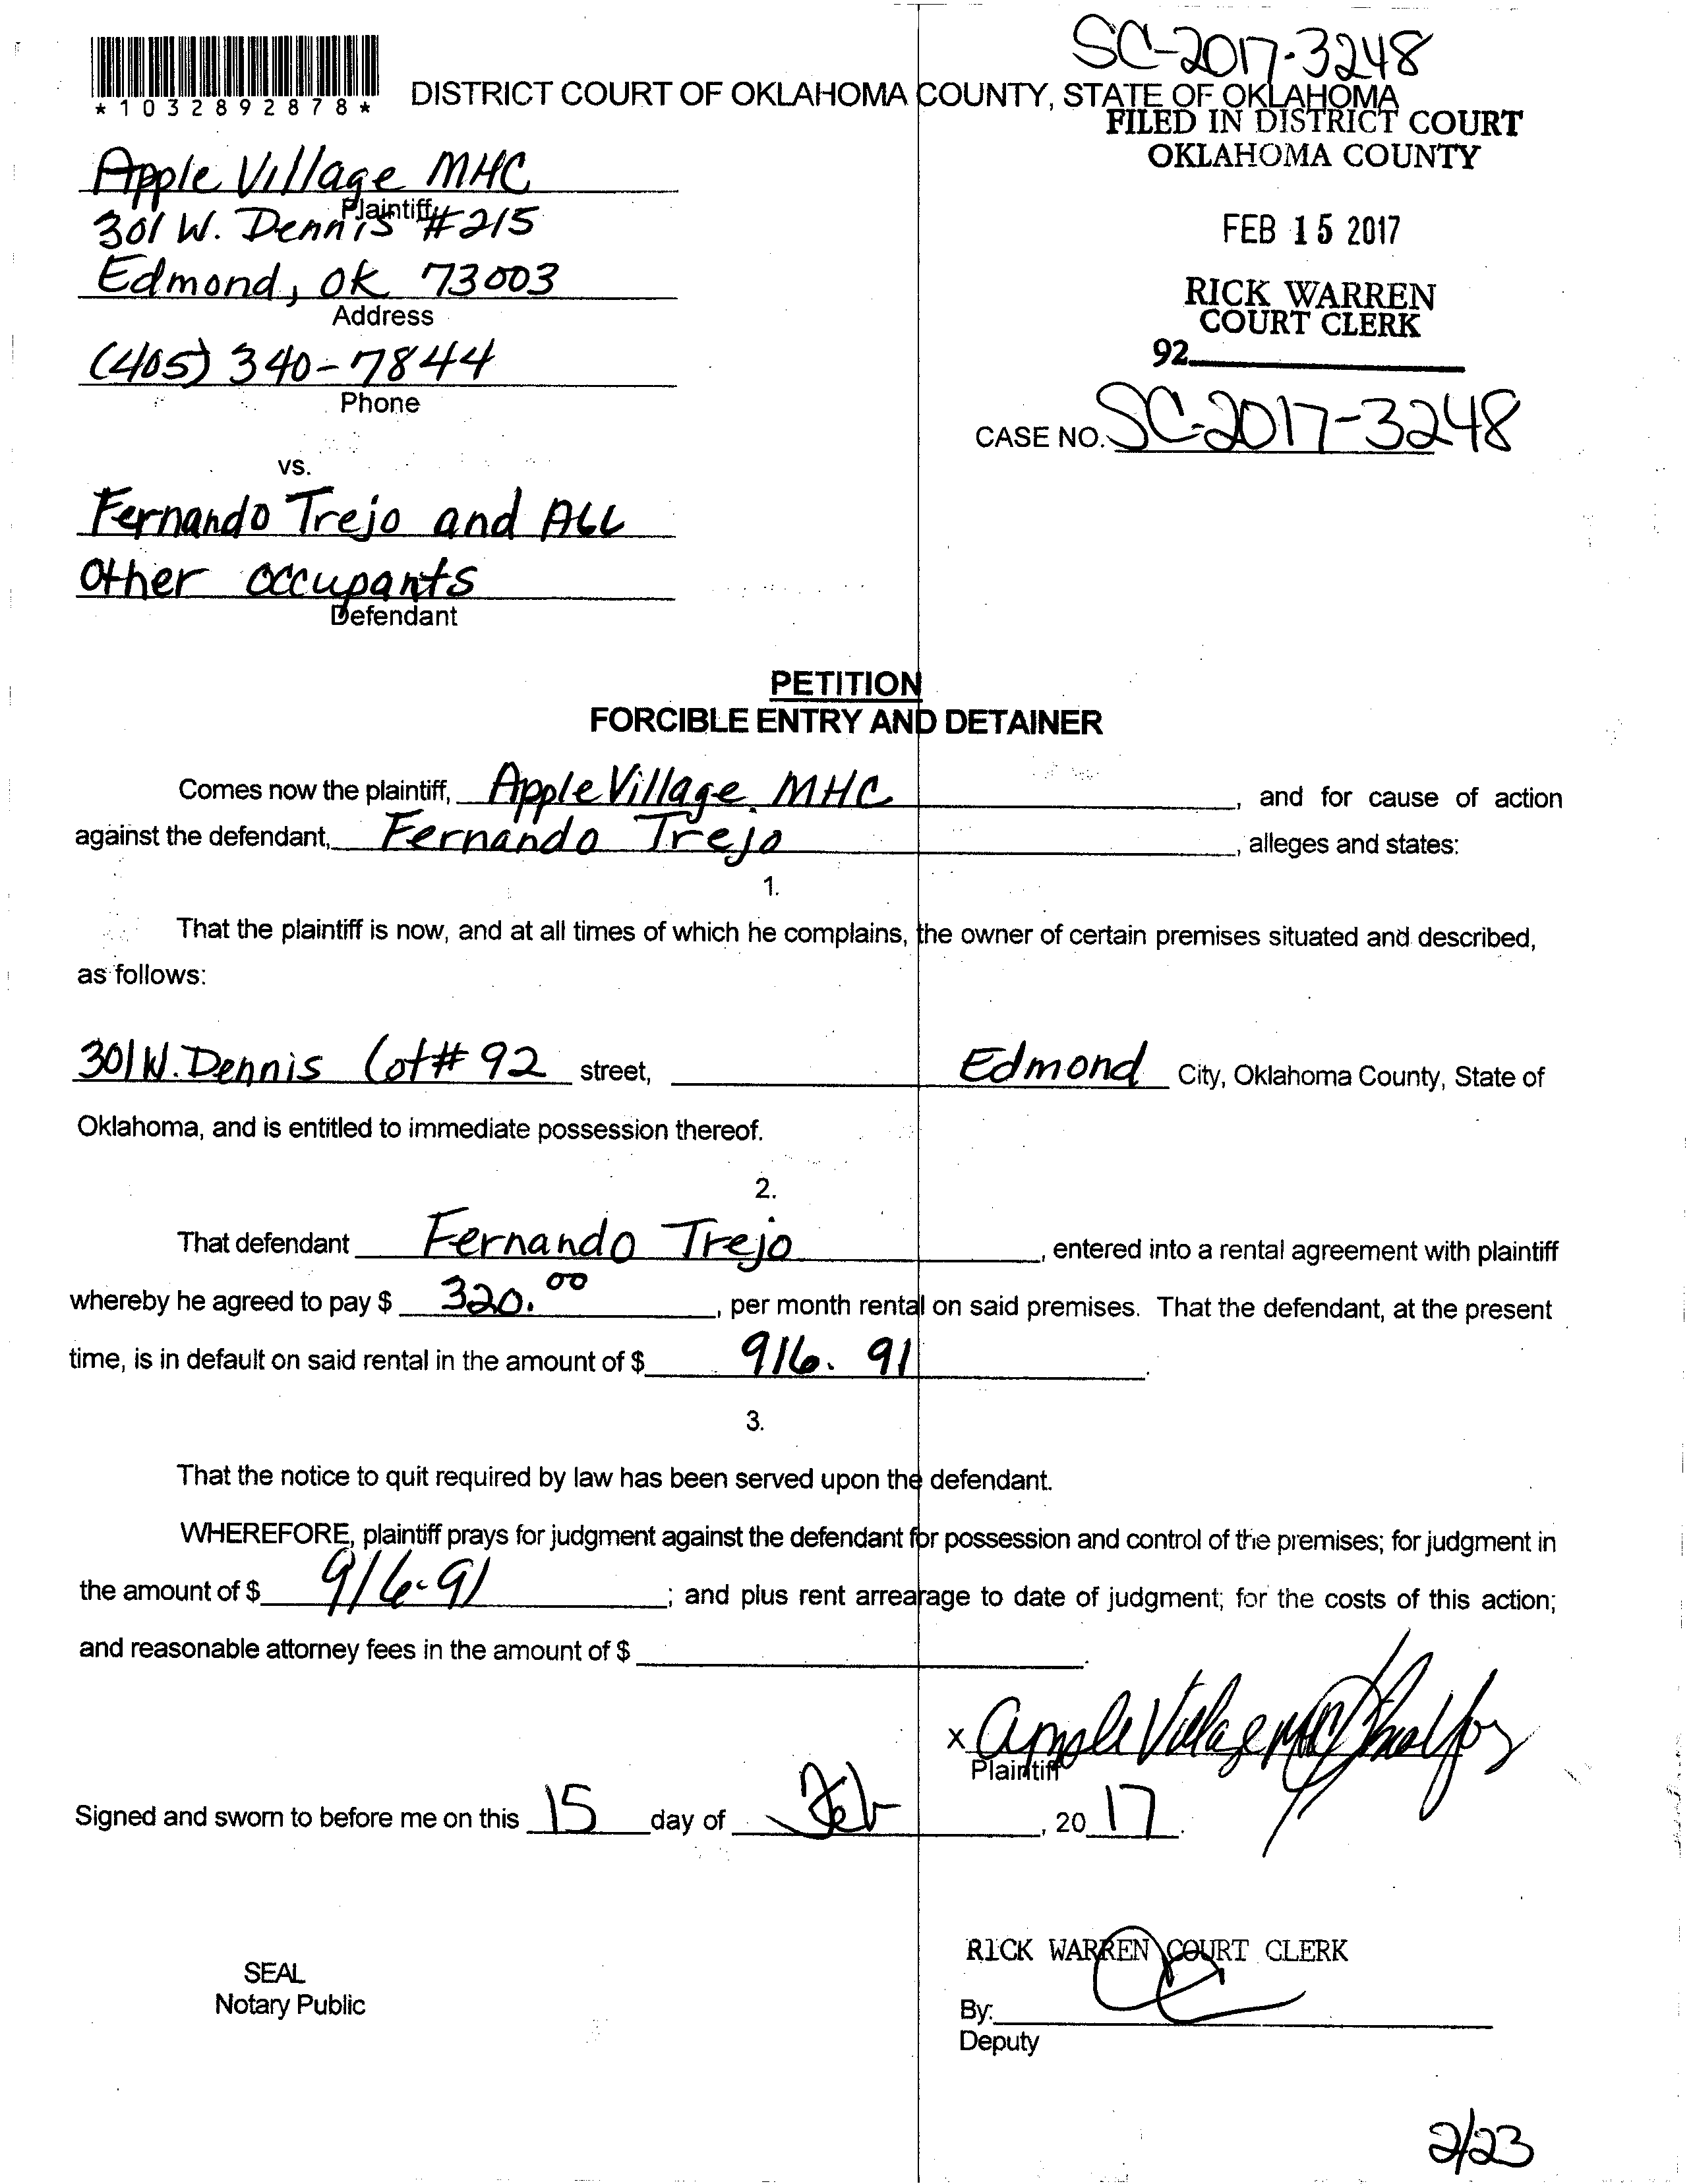 SC-2017-3248
*1032892878*
DISTRICT COURT OF OKLAHOMA COUNTY, STATE OF OKLAHOMA
FILED IN DISTRICT COURT
OKLAHOMA COUNTY
FEB 15 2017
RICK WARREN
COURT CLERK
92
Apple Village MHC
Plaintiff
301 W. Dennis #215
Edmond, OK 73003
Address
(405) 340-7844
Phone
CASE NO. SC-2017-3248
vs.
Fernando Trejo and ALL
Other occupants
Defendant
PETITION
FORCIBLE ENTRY AND DETAINER
Comes now the plaintiff, Apple Village MHC, and for cause of action
against the defendant, Fernando Trejo, alleges and states:
1.
That the plaintiff is now, and at all times of which he complains, the owner of certain premises situated and described,
as follows:
301 W. Dennis Lot# 92 street, Edmond City, Oklahoma County, State of
Oklahoma, and is entitled to immediate possession thereof.
2.
That defendant Fernando Trejo, entered into a rental agreement with plaintiff
whereby he agreed to pay $ 320.00, per month rental on said premises. That the defendant, at the present
time, is in default on said rental in the amount of $ 916.91.
3.
That the notice to quit required by law has been served upon the defendant.
WHEREFORE, plaintiff prays for judgment against the defendant for possession and control of the premises; for judgment in
the amount of $ 916.91; and plus rent arrearage to date of judgment; for the costs of this action;
and reasonable attorney fees in the amount of $ .
x Apple Village MHC
Plaintiff
Signed and sworn to before me on this 15 day of Feb, 2017.
RICK WARREN COURT CLERK
SEAL
Notary Public
By:
Deputy
2/23